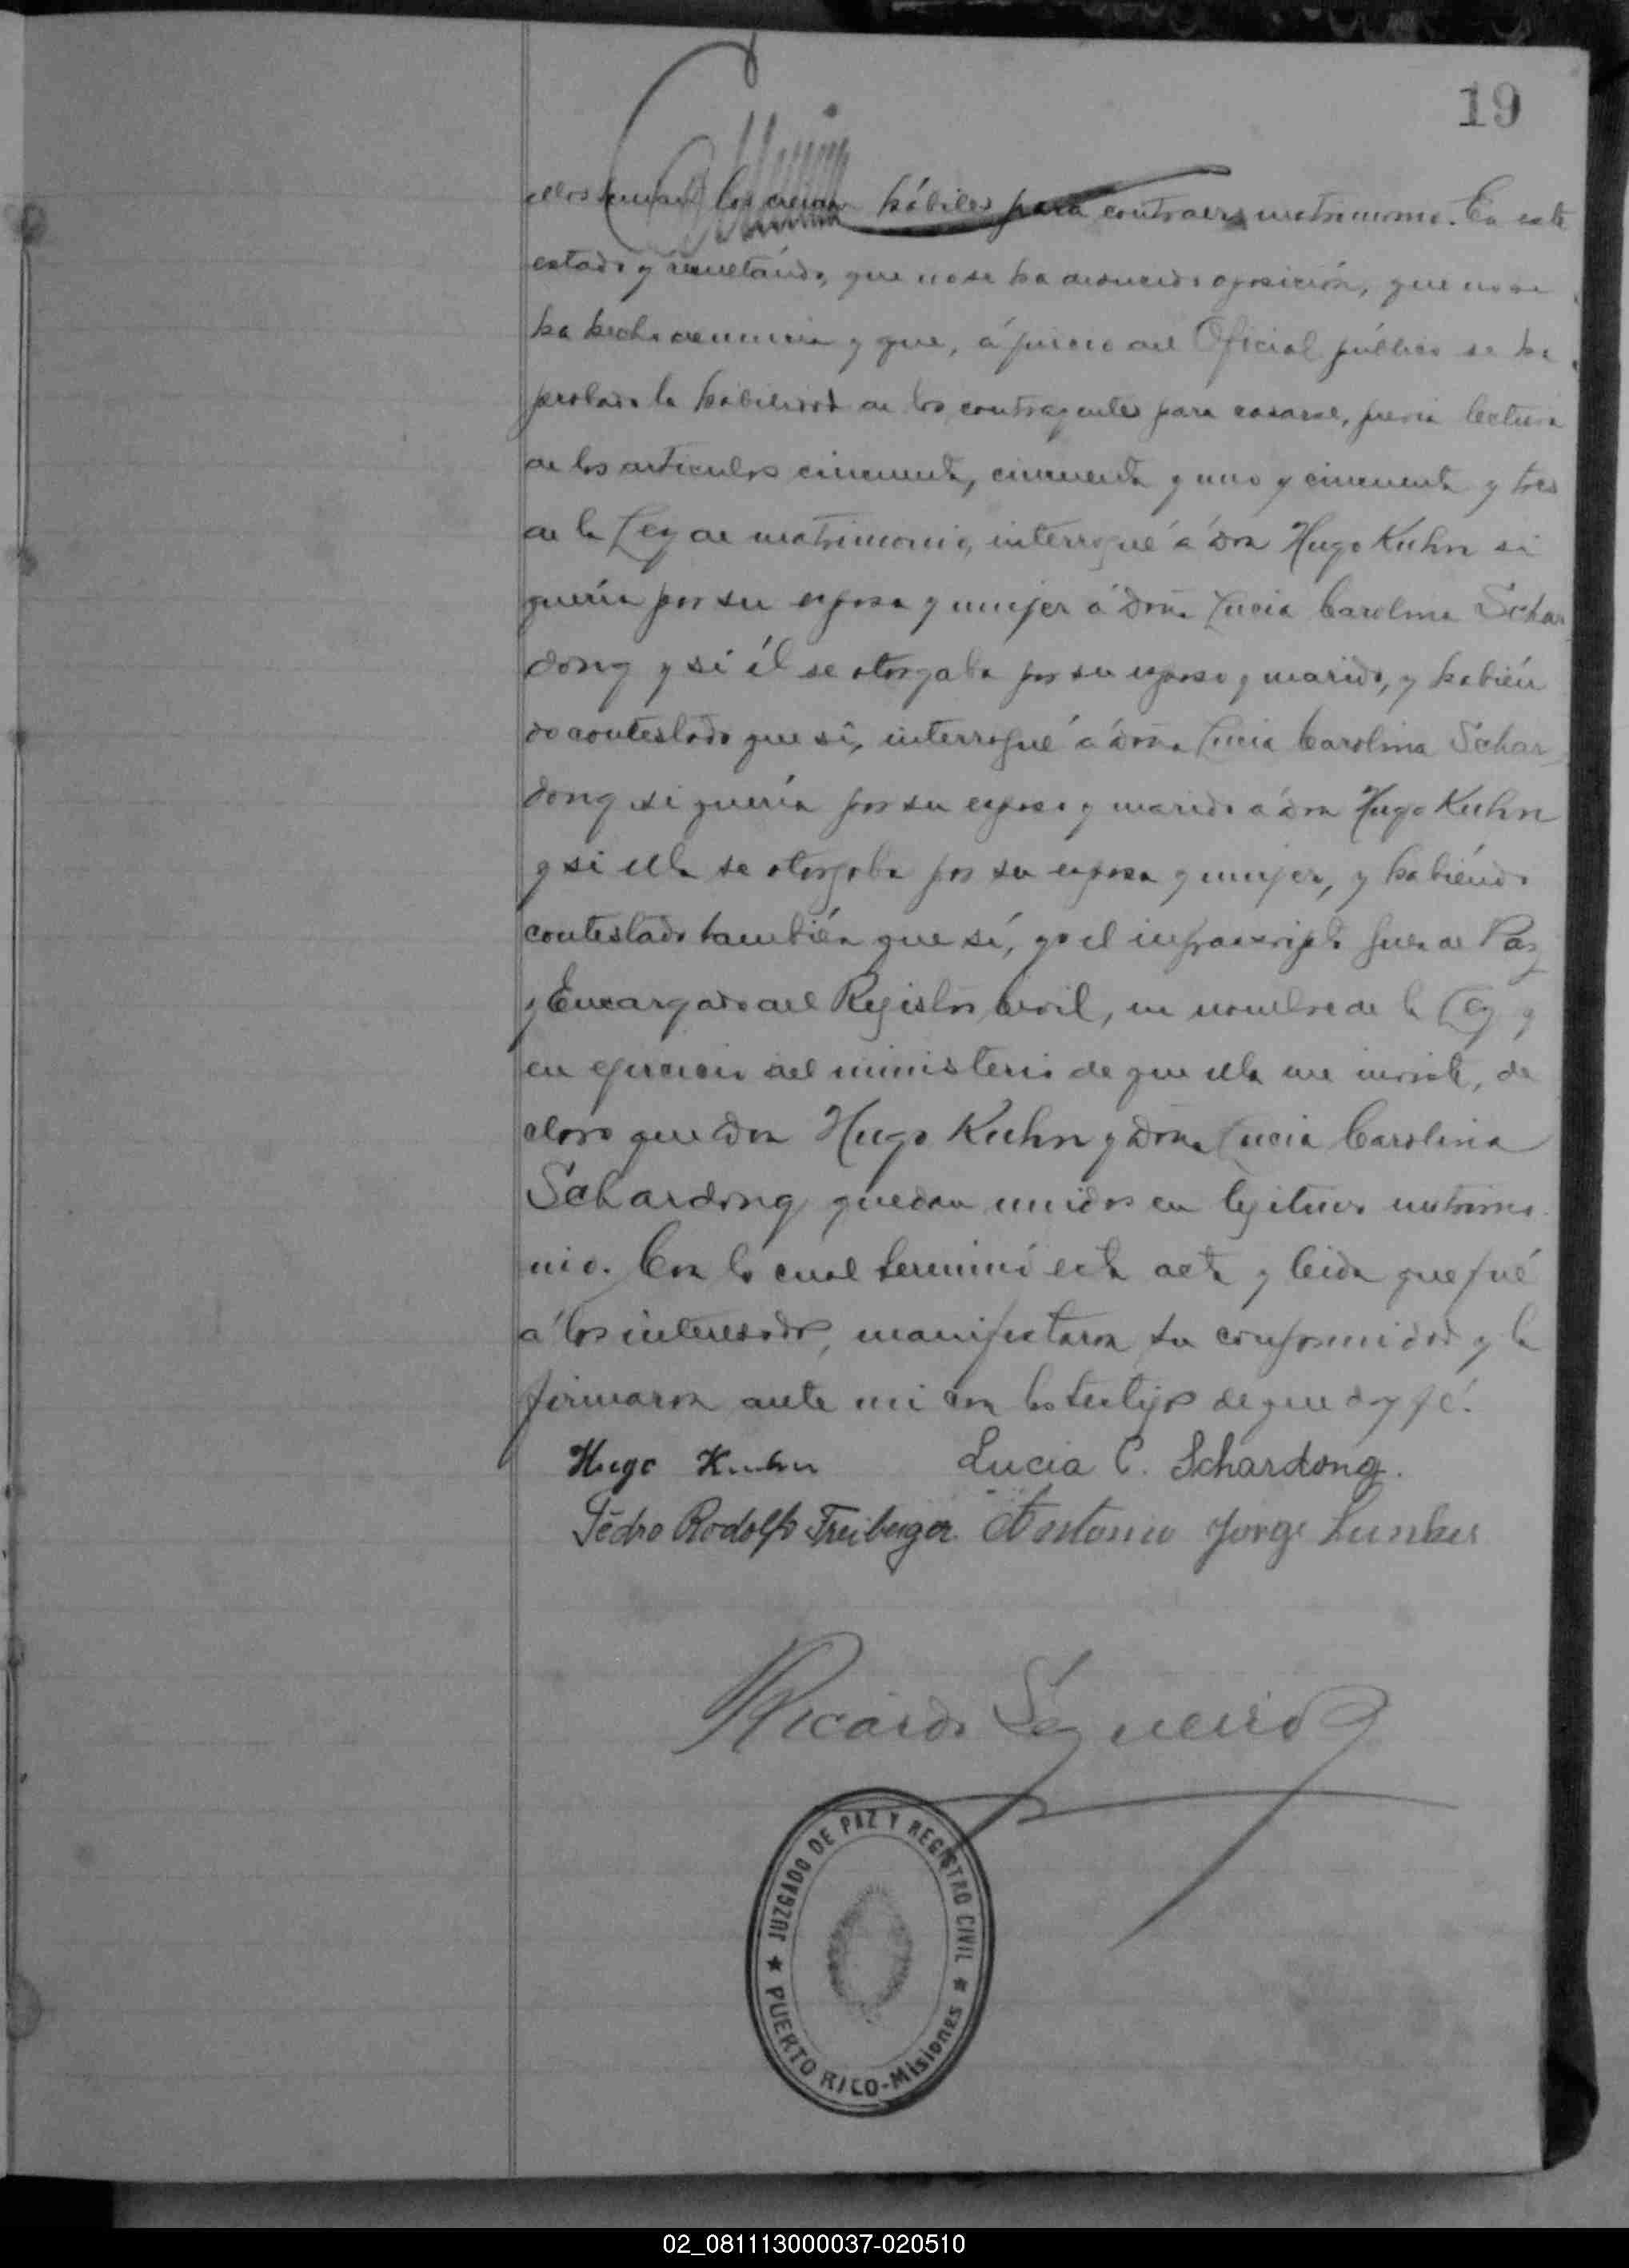 19
los creian hábiles para contraer matrimonio. En este
estado y resultándo, que no se ha deducido oposición, que no se
ha hecho denuncia y que, á juicio del Oficial público se ha
probado la habilidad de los contrayentes para casarse, previa lectura
de los articulos cincuenta, cincuenta y uno y cincuenta y tres
de la Ley de matrimonio, interrogué á don Hugo Kuhn si
quería por su esposa y mujer á doña Lucia Carolina Schar
dong y si él se otorgaba por su esposo y marido, y habién
do contestado que si, interrogué á doña Lucia Carolina Schar
dong si quería por su esposo y marido á don Hugo Kuhn
y si ella se otorgaba por su esposa y mujer, y habiéndo
contestado también que sí, yo el infrascripto Juez de Paz
y Encargado del Registro Civil, en nombre de la Ley y
en ejercicio del ministerio de que ella me inviste, de
claro que don Hugo Kuhn y doña Lucia Carolina
Schardong quedan unidos en legitimo matrimo
nio. Con lo cual terminó esta acta y leida que fué
á los interesados, manifestaron su conformidad y la
firmaron ante mi con los testigos de que doy fé.
Hugo Kuhn Lucia C. Schardong.
Pedro Rodolfo Freiberger. Antonio Jorge Lunkes
Ricardo Sequeira
JUZGADO DE PAZ Y REGISTRO CIVIL
PUERTO RICO-Misiones
02_081113000037-020510